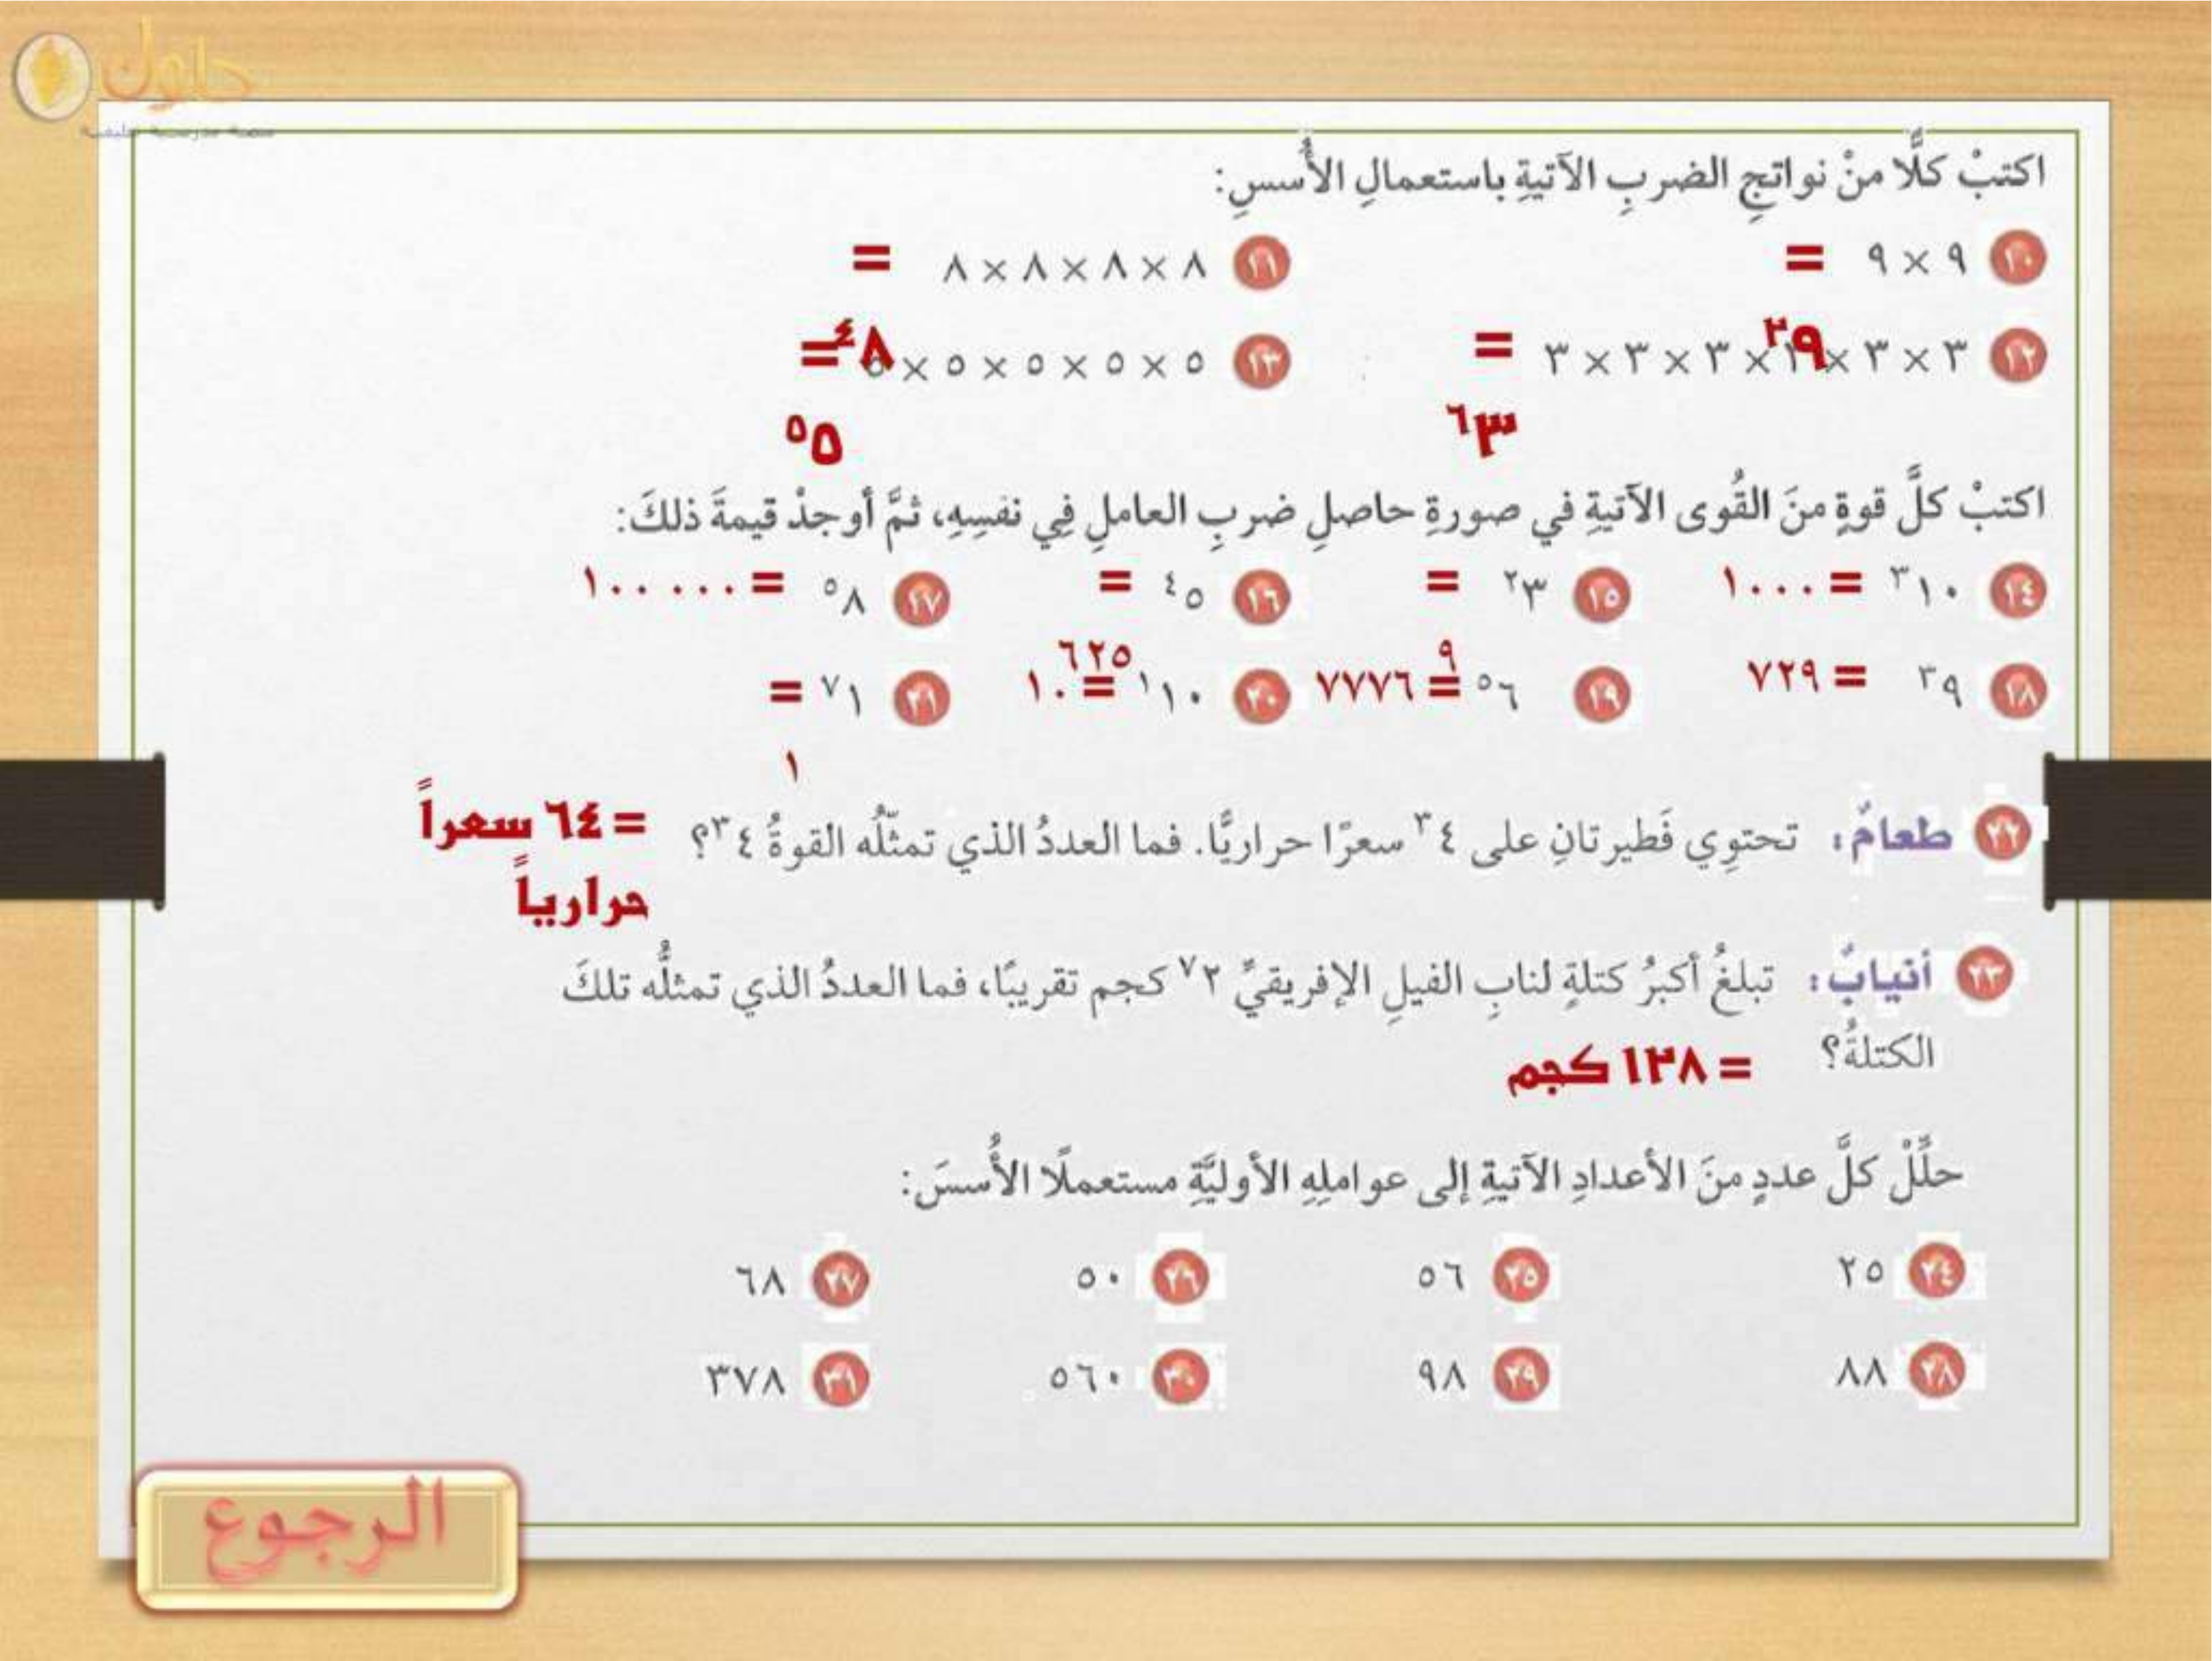 حلول
منصة مدرستية تعليمية
اكتبْ كلًّا منْ نواتجِ الضربِ الآتيةِ باستعمالِ الأُسسِ:
١٠ ٩ × ٩ =
١١ ٨ × ٨ × ٨ × ٨ =
٩٢
٨٤
١٢ ٣ × ٣ × ٣ × ٣ × ٣ × ٣ =
١٣ ٥ × ٥ × ٥ × ٥ × ٥ =
٣٦
٥٥
اكتبْ كلَّ قوةٍ منَ القُوى الآتيةِ في صورةِ حاصلِ ضربِ العاملِ فِي نفسِهِ، ثمَّ أوجدْ قيمةَ ذلكَ:
١٤ ١٠٣ = ١٠٠٠
١٥ ٣٢ =
٩
١٦ ٥٤ =
٦٢٥
١٧ ٨٥ = ١٠٠٠٠٠
١٨ ٩٣ = ٧٢٩
١٩ ٦٥ = ٧٧٧٦
٢٠ ١٠١ = ١٠
٢١ ١٧ =
١
٢٢ طعامٌ: تحتوِي فَطيرتانِ على ٤٣ سعرًا حراريًّا. فما العددُ الذي تمثّلُه القوةُ ٤٣؟ = ٦٤ سعراً
حرارياً
٢٣ أنيابٌ: تبلغُ أكبرُ كتلةٍ لنابِ الفيلِ الإفريقيِّ ٢٧ كجم تقريبًا، فما العددُ الذي تمثلُّه تلكَ
الكتلةُ؟ = ١٢٨ كجم
حلِّلْ كلَّ عددٍ منَ الأعدادِ الآتيةِ إلى عواملِهِ الأوليَّةِ مستعملًا الأُسسَ:
٢٤ ٢٥ ٢٥ ٥٦ ٢٦ ٥٠ ٢٧ ٦٨
٢٨ ٨٨ ٢٩ ٩٨ ٣٠ ٥٦٠ ٣١ ٣٧٨
الرجوع